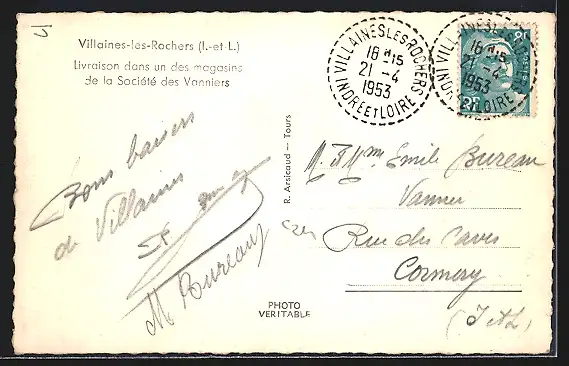 Villaines-les-Rochers (I.-et-L.)
Livraison dans un des magasins
de la Société des Vanniers
Bons baisers
de Villaines
M Bureau
R. Arsicaud — Tours
PHOTO
VERITABLE
VILLAINES LES ROCHERS
16 H 15
21 -4
1953
INDRE ET LOIRE
VILLAINES LES ROCHERS
16 H 15
21 -4
1953
INDRE ET LOIRE
M. & Mme Emile Bureau
Vannier
Rue des Caves
Cormery
(I et L)